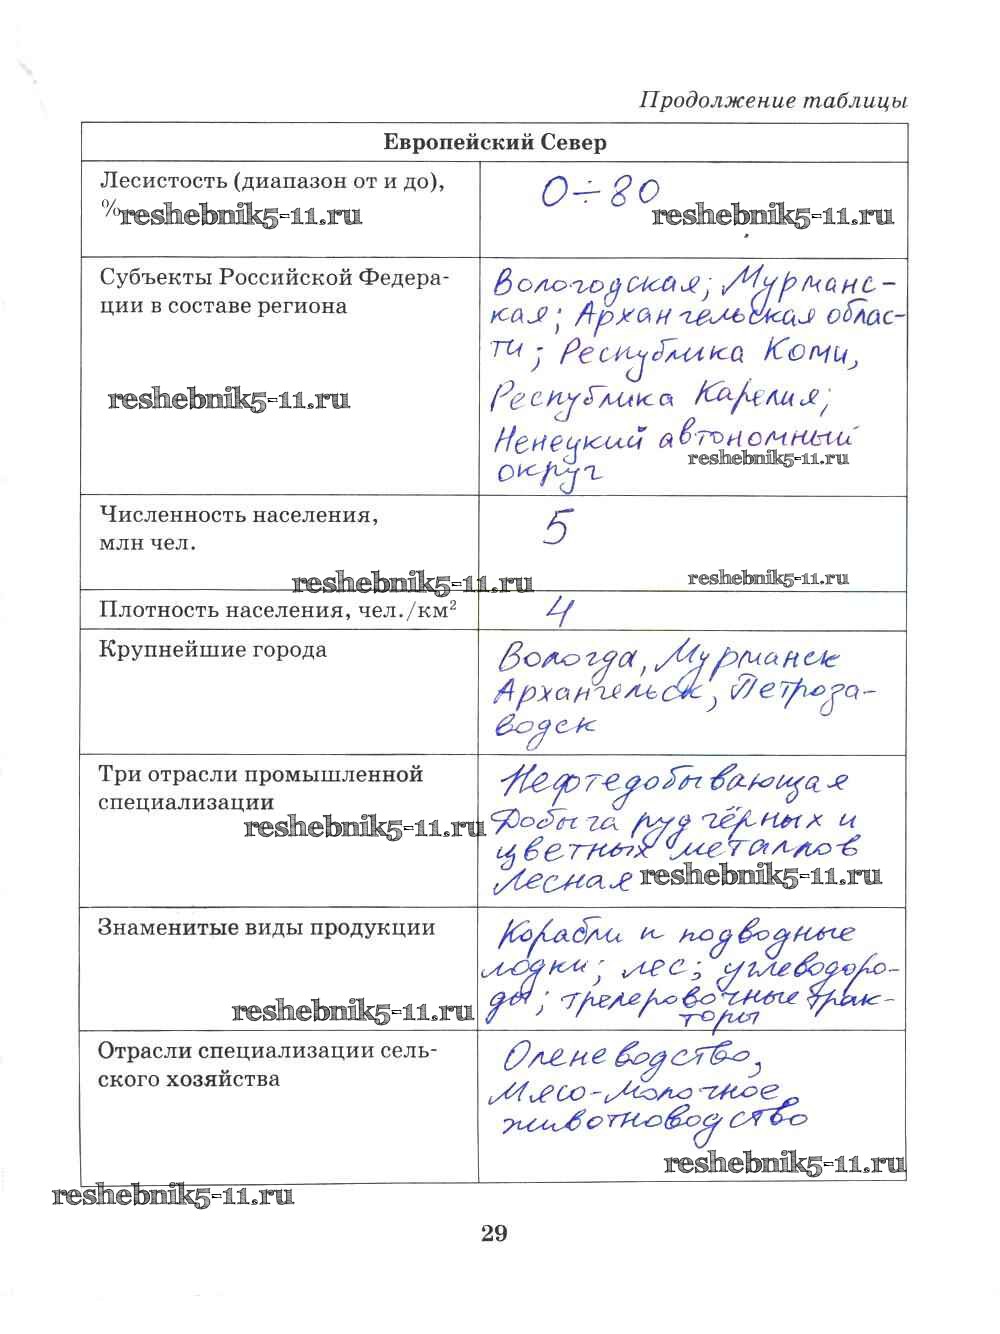 Продолжение таблицы
Европейский Север
Лесистость (диапазон от и до),
%
reshebnik5-11.ru
0÷80
reshebnik5-11.ru
Субъекты Российской Федера-
ции в составе региона
reshebnik5-11.ru
Вологодская; Мурманс-
кая; Архангельская облас-
ти; Республика Коми,
Республика Карелия;
Ненецкий автономный
reshebnik5-11.ru
округ
Численность населения,
млн чел.
5
reshebnik5-11.ru
reshebnik5-11.ru
Плотность населения, чел./км²
4
Крупнейшие города
Вологда, Мурманск
Архангельск, Петроза-
водск
Три отрасли промышленной
специализации
reshebnik5-11.ru
Нефтедобывающая
Добыча руд чёрных и
цветных металлов
Лесная
reshebnik5-11.ru
Знаменитые виды продукции
reshebnik5-11.ru
Корабли и подводные
лодки; лес; углеводоро-
ды; трелеровочные трак-
торы
Отрасли специализации сель-
ского хозяйства
Оленеводство,
Мясо-молочное
животноводство
reshebnik5-11.ru
reshebnik5-11.ru
29